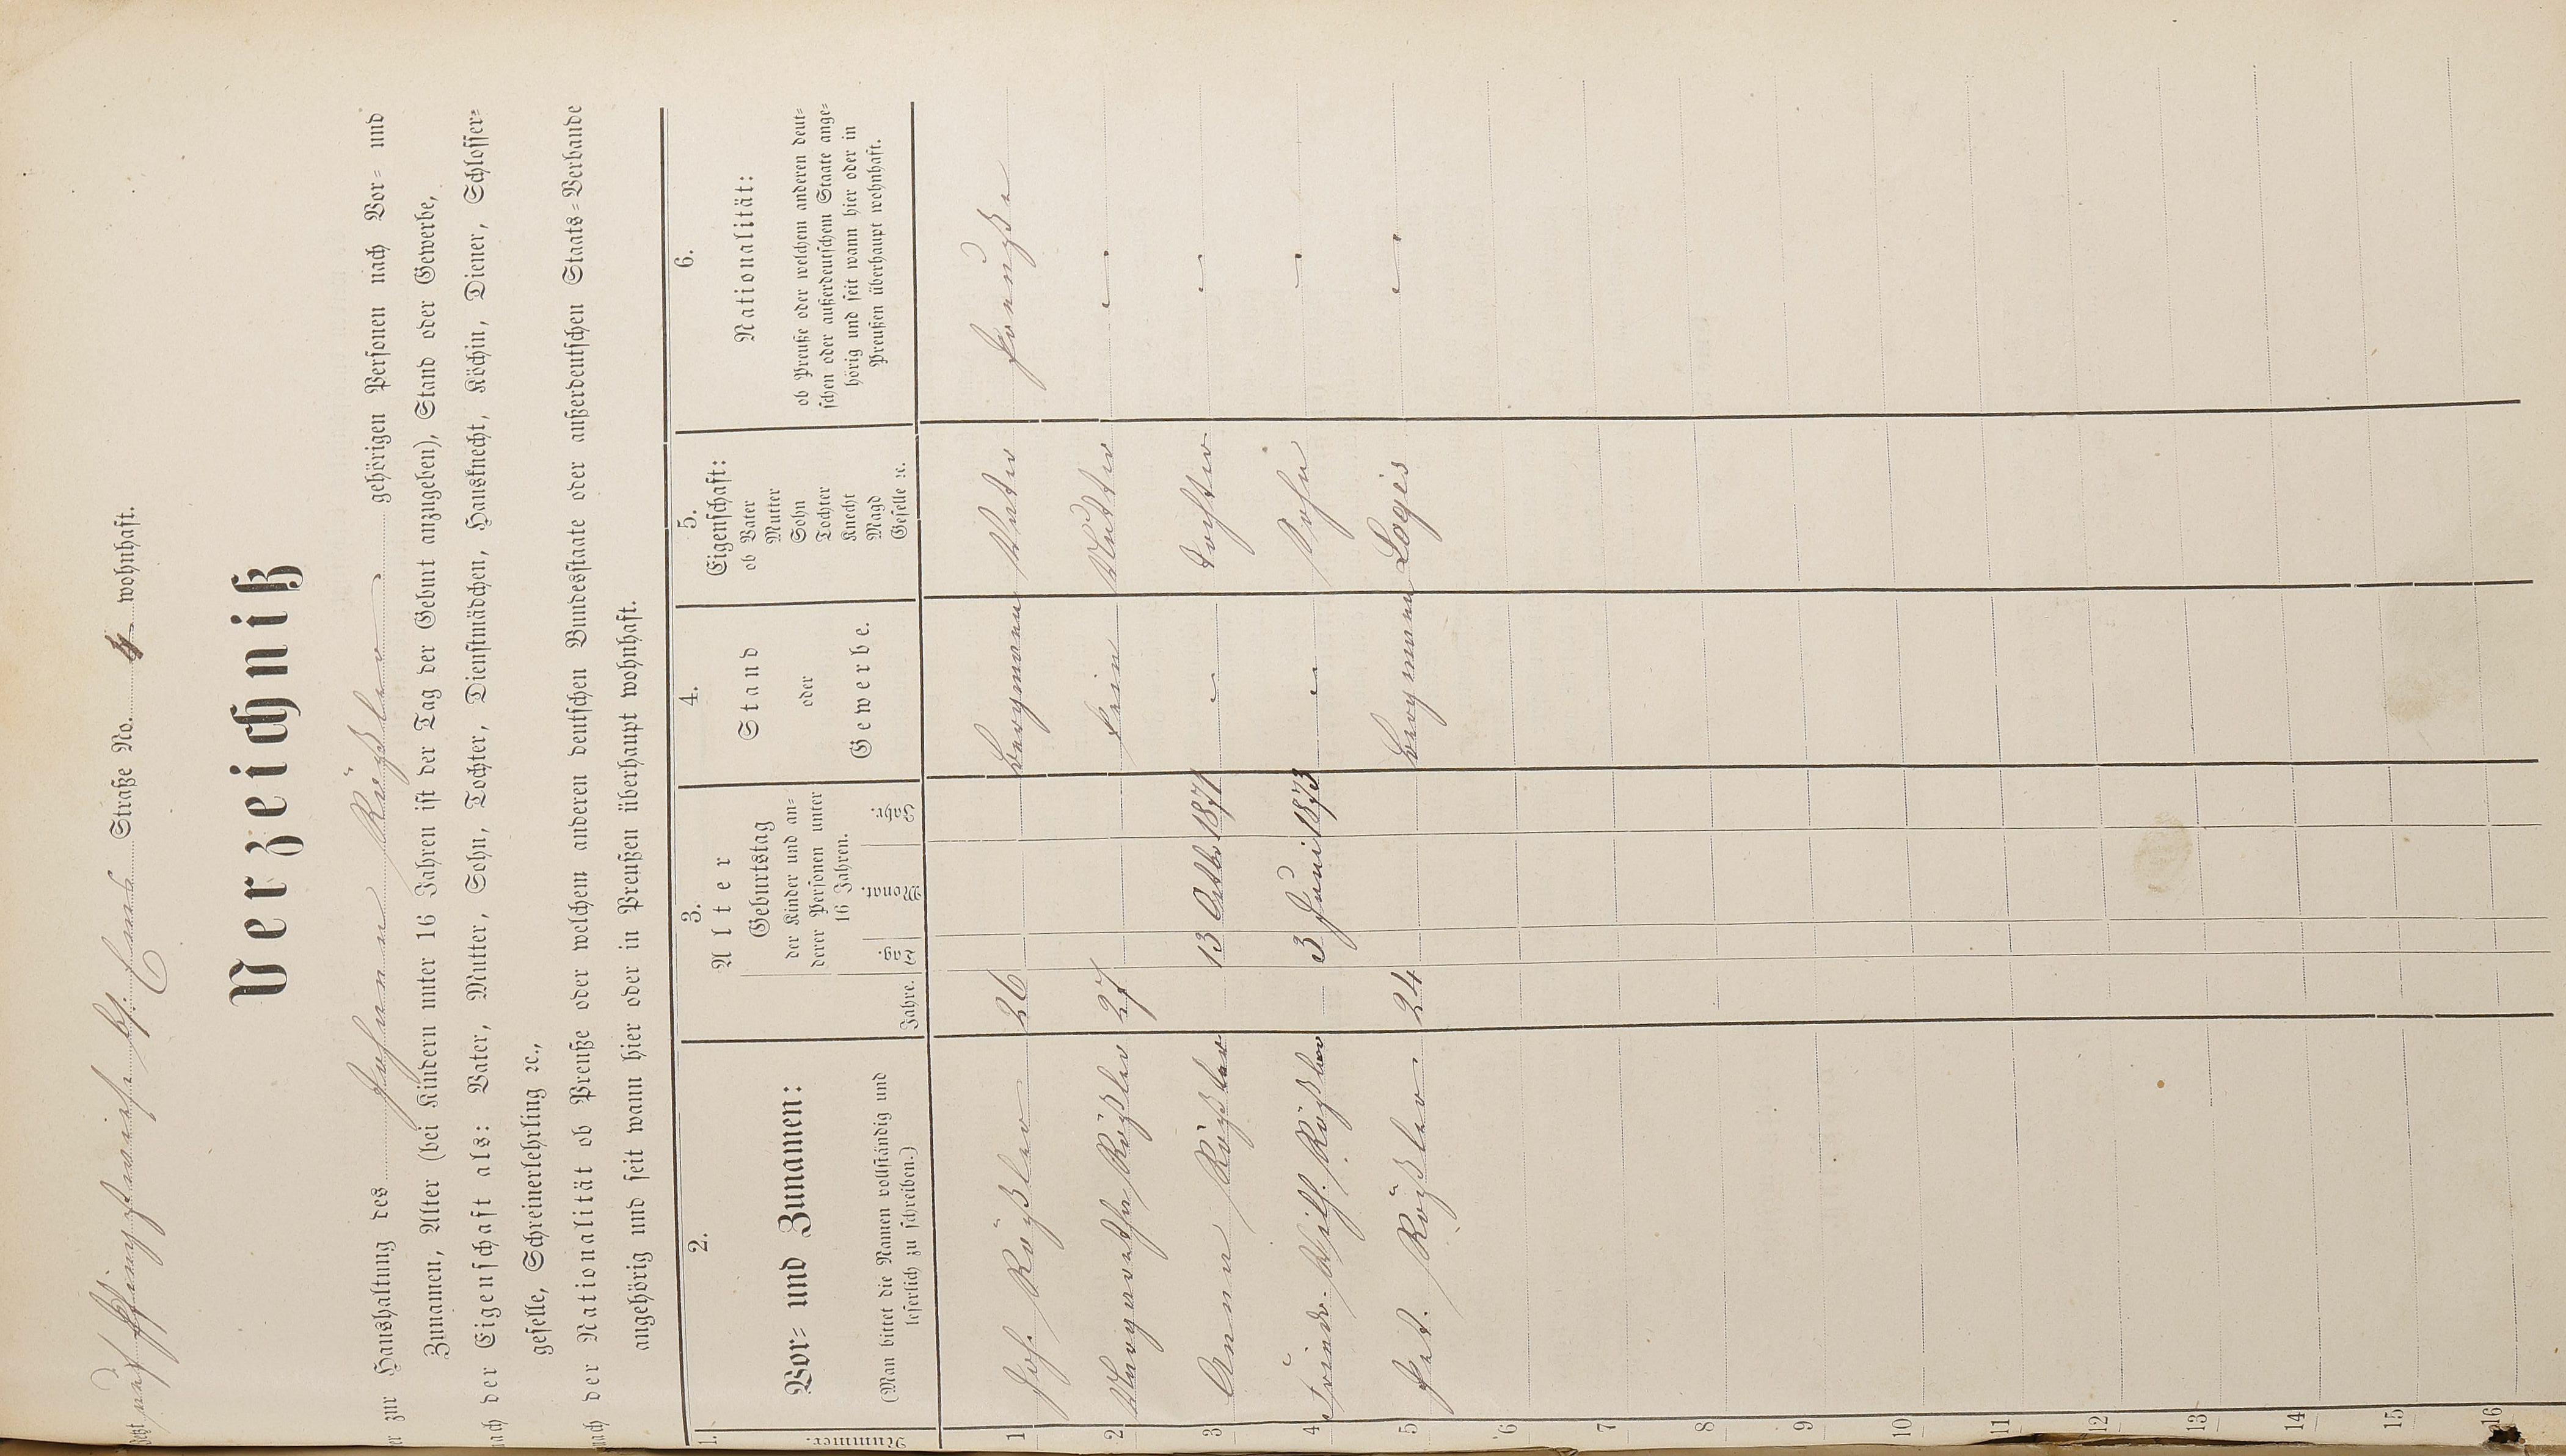 jetzt Straße No. 4 wohnhaft.
Verzeichniß
er zur Haushaltung des Johann Rößler gehörigen Personen nach Vor= und
Zunamen, Alter (bei Kindern unter 16 Jahren ist der Tag der Geburt anzugeben), Stand oder Gewerbe,
nach der Eigenschaft als: Vater, Mutter, Sohn, Tochter, Dienstmädchen, Hausknecht, Köchin, Diener, Schlosser=
geselle, Schreinerlehrling ꝛc.,
nach der Nationalität ob Preuße oder welchem anderen deutschen Bundesstaate oder außerdeutschen Staats=Verbande
angehörig und seit wann hier oder in Preußen überhaupt wohnhaft.
1. 2. 3. 4. 5. 6.
Nummer.
Vor= und Zunamen:
(Man bittet die Namen vollständig und
leserlich zu schreiben.)
Alter
Jahre.
Geburtstag
der Kinder und an=
derer Personen unter
16 Jahren.
Tag Monat. Jahr.
Stand
oder
Gewerbe.
Eigenschaft:
ob Vater
Mutter
Sohn
Tochter
Knecht
Magd
Geselle ꝛc.
Nationalität:
ob Preuße oder welchem anderen deut=
schen oder außerdeutschem Staate ange=
hörig und seit wann hier oder in
Preußen überhaupt wohnhaft.
1 Joh. Rößler 26 Bergmann Vater Preuße
2 Margaretha Rößler 27 kein Mutter "
3 Anna Rößler 13 Octbr 1871 " Tochter "
4 Friedr. Wilh. Rößler 3 Juni 1873 " Sohn "
5 Pet. Rößler 24 Bergmann Logis "
6
7
8
9
10
11
12
13
14
15
16